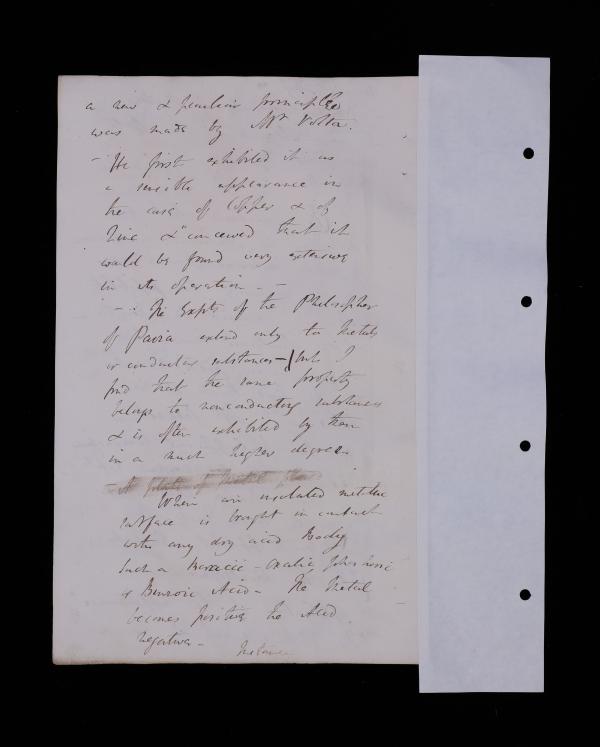 a new & peculiar principle
was made by Mr Volta.
- He first exhibited it as
a sensible appearance in
the case of Copper & of
Zinc & conceived that it
would be found very extensive
in its operation. -
- . The Expts of the Philosopher
of Pavia extend only to Metals
or conducting substances - but I
find that the same property
belongs to nonconducting substances
& is often exhibited by them
in a much higher degree -
- A plate of Metal
When an insulated metallic
surface is brought in contact
with any dry acid Body
such as Boracic - Oxalic
& Benzoic Acid - The Metal
becomes positive the Acid
negative -